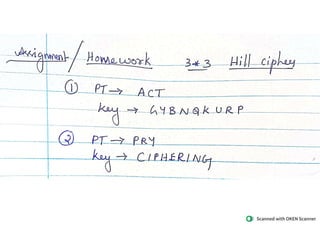 Assignment / Homework 3*3 Hill cipher
① PT → ACT
key → GYBNQKURP
② PT → PRY
key → CIPHERING
Scanned with OKEN Scanner